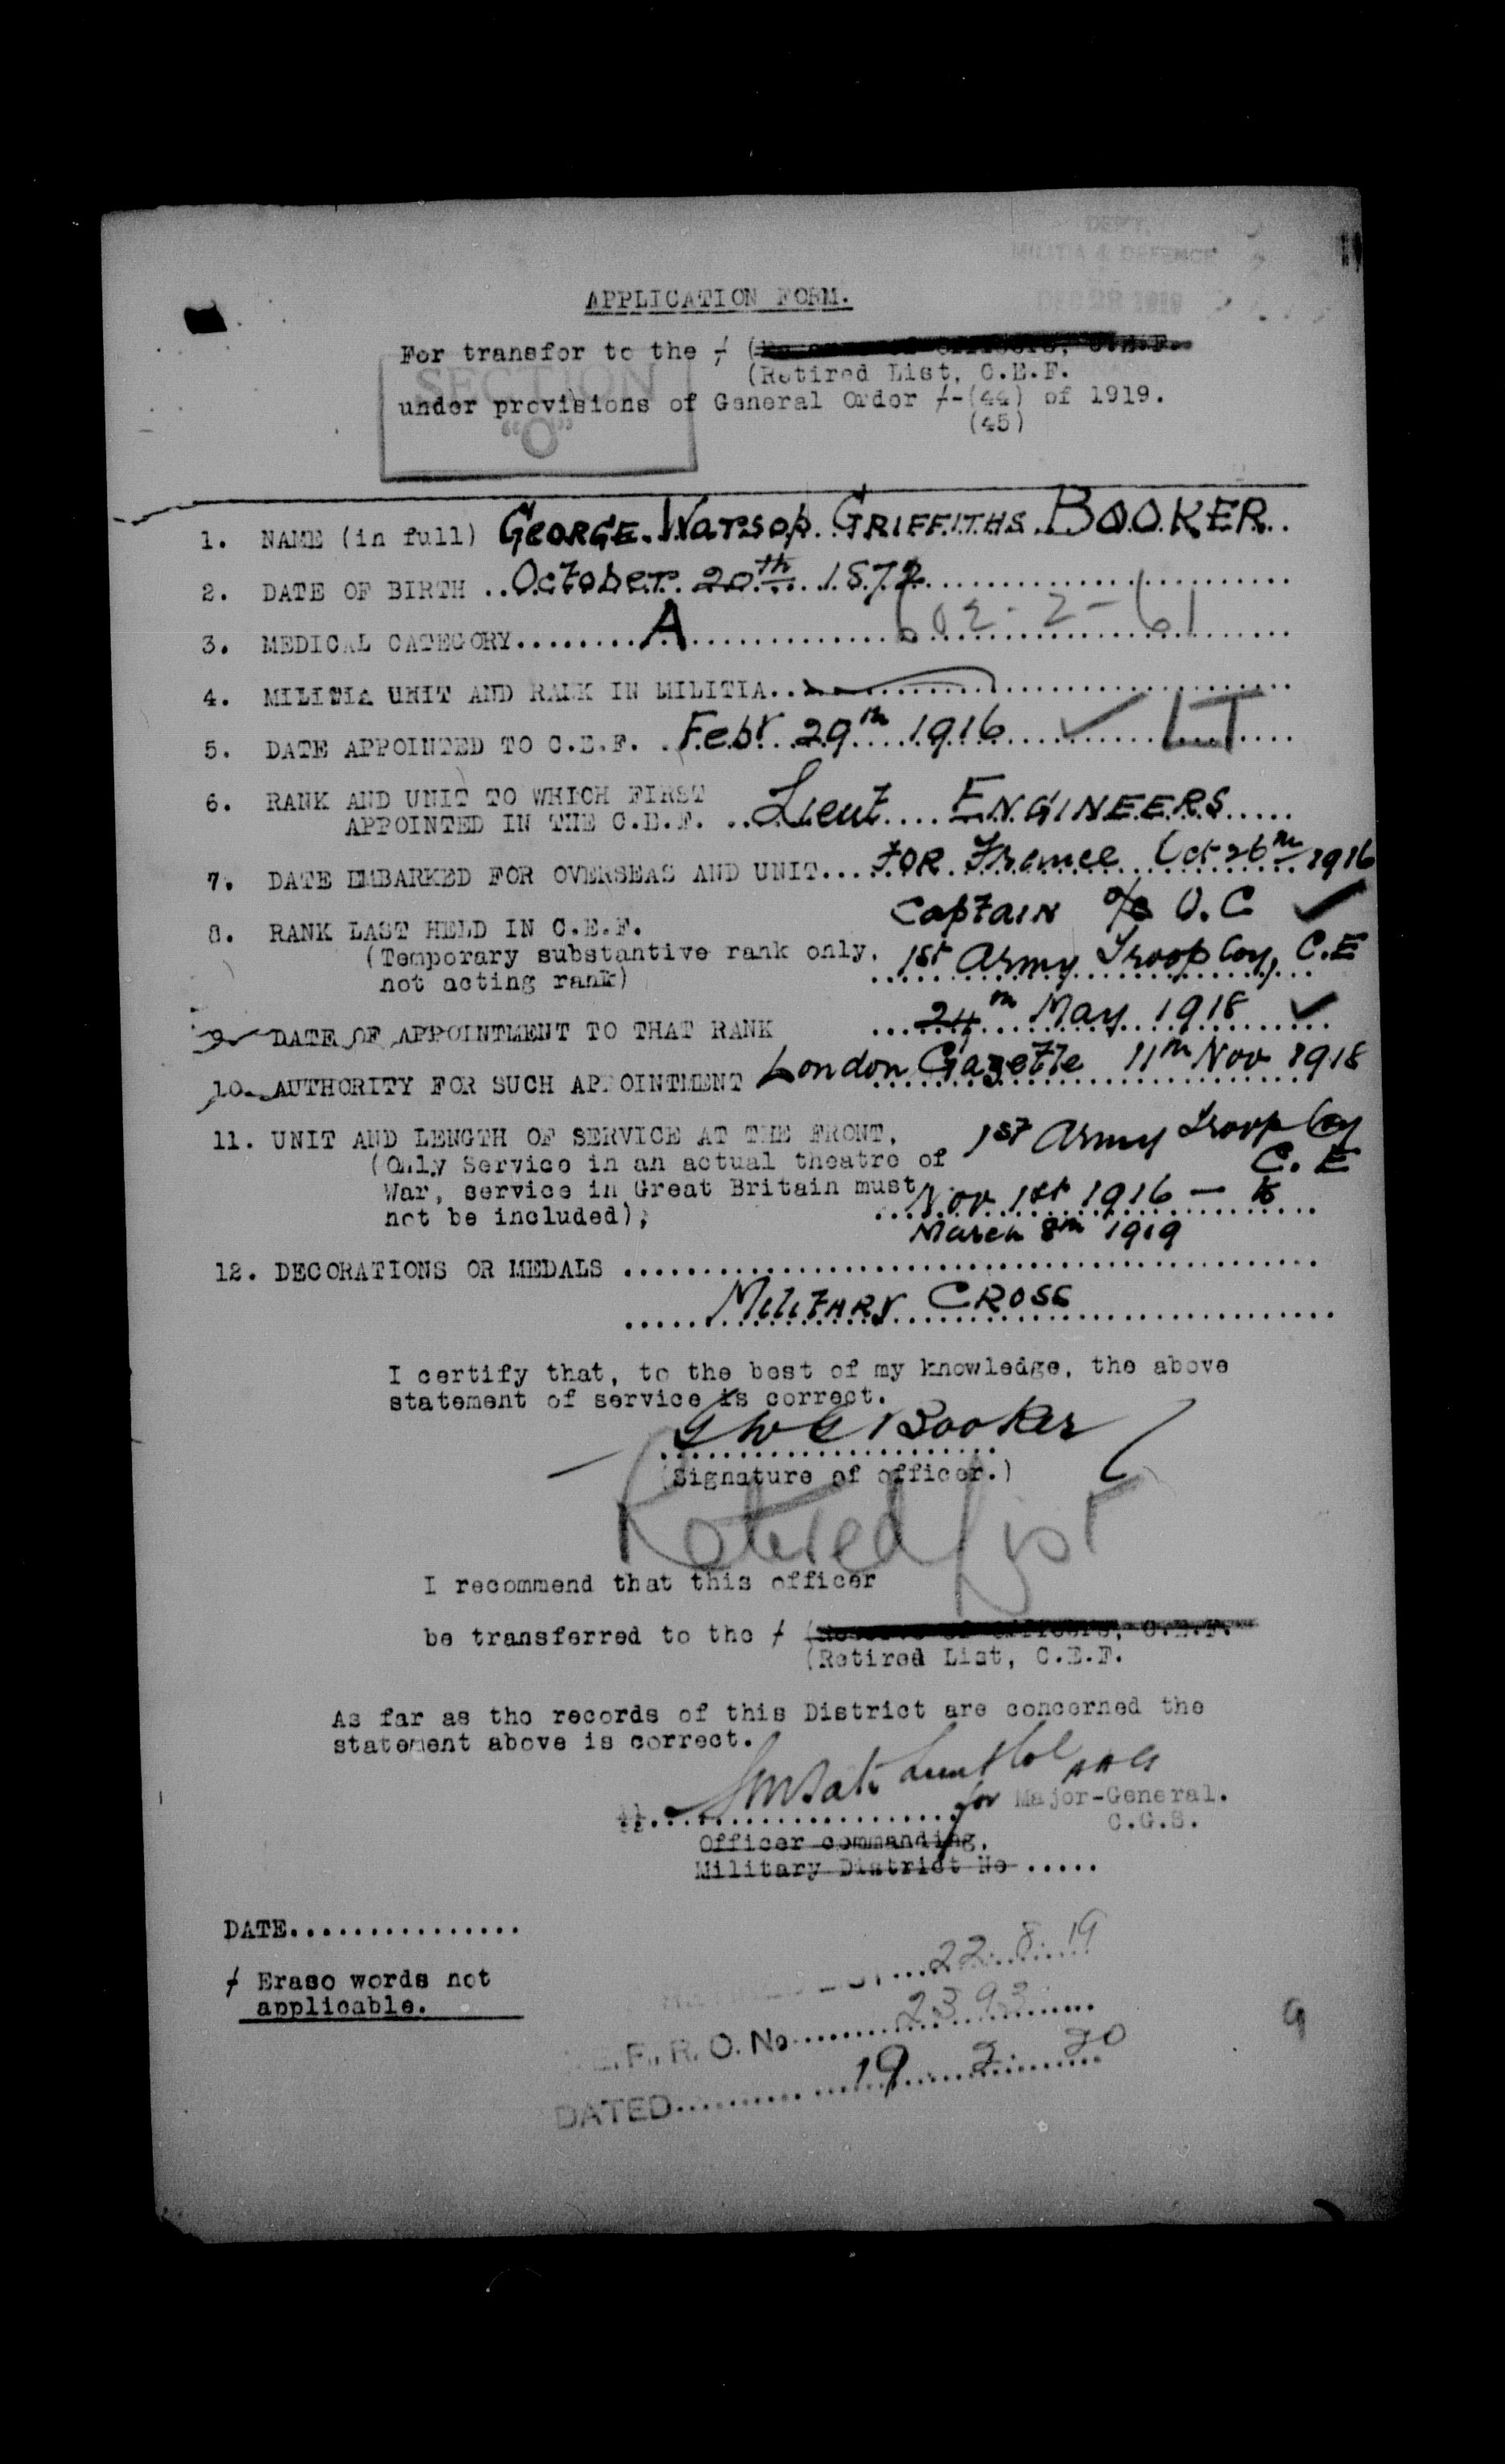 DEPT.
MILITIA & DEFENCE
APPLICATION FORM.
For transfer to the / (Reserve of Officers, C.E.F.
(Retired List, C.E.F.
SECTION
"O"
under provisions of General Order /-(44) of 1919.
(45)
1. NAME (in full) GEORGE WATSOP GRIFFITHS BOOKER
2. DATE OF BIRTH October 20th 1872
602-2-61
3. MEDICAL CATEGORY A
4. MILITIA UNIT AND RANK IN MILITIA
5. DATE APPOINTED TO C.E.F. Febr 29th 1916 LT
6. RANK AND UNIT TO WHICH FIRST
APPOINTED IN THE C.E.F. Lieut ENGINEERS
7. DATE EMBARKED FOR OVERSEAS AND UNIT FOR France Oct 26th 1916
8. RANK LAST HELD IN C.E.F. Captain O.C
(Temporary substantive rank only, 1st Army Troop Coy, C.E
not acting rank)
9. DATE OF APPOINTMENT TO THAT RANK 24th May 1918
10. AUTHORITY FOR SUCH APPOINTMENT London Gazette 11th Nov 1918
11. UNIT AND LENGTH OF SERVICE AT THE FRONT, 1st Army Troop Coy
(Only Service in an actual theatre of C.E
War, service in Great Britain must Nov 1st 1916 - to
not be included); March 8th 1919
12. DECORATIONS OR MEDALS
MILITARY CROSS
I certify that, to the best of my knowledge, the above
statement of service is correct.
GWG Booker
(Signature of officer.)
Retired List
I recommend that this officer
be transferred to the / (Reserve of Officers, C.E.F.
(Retired List, C.E.F.
As far as the records of this District are concerned the
statement above is correct.
Lieut Col AAG
for Major-General.
C.G.S.
Officer commanding,
Military District No
DATE
/ Erase words not
applicable.
22 8 19
E.F., R.O. No 2393
DATED 19 2 20
9